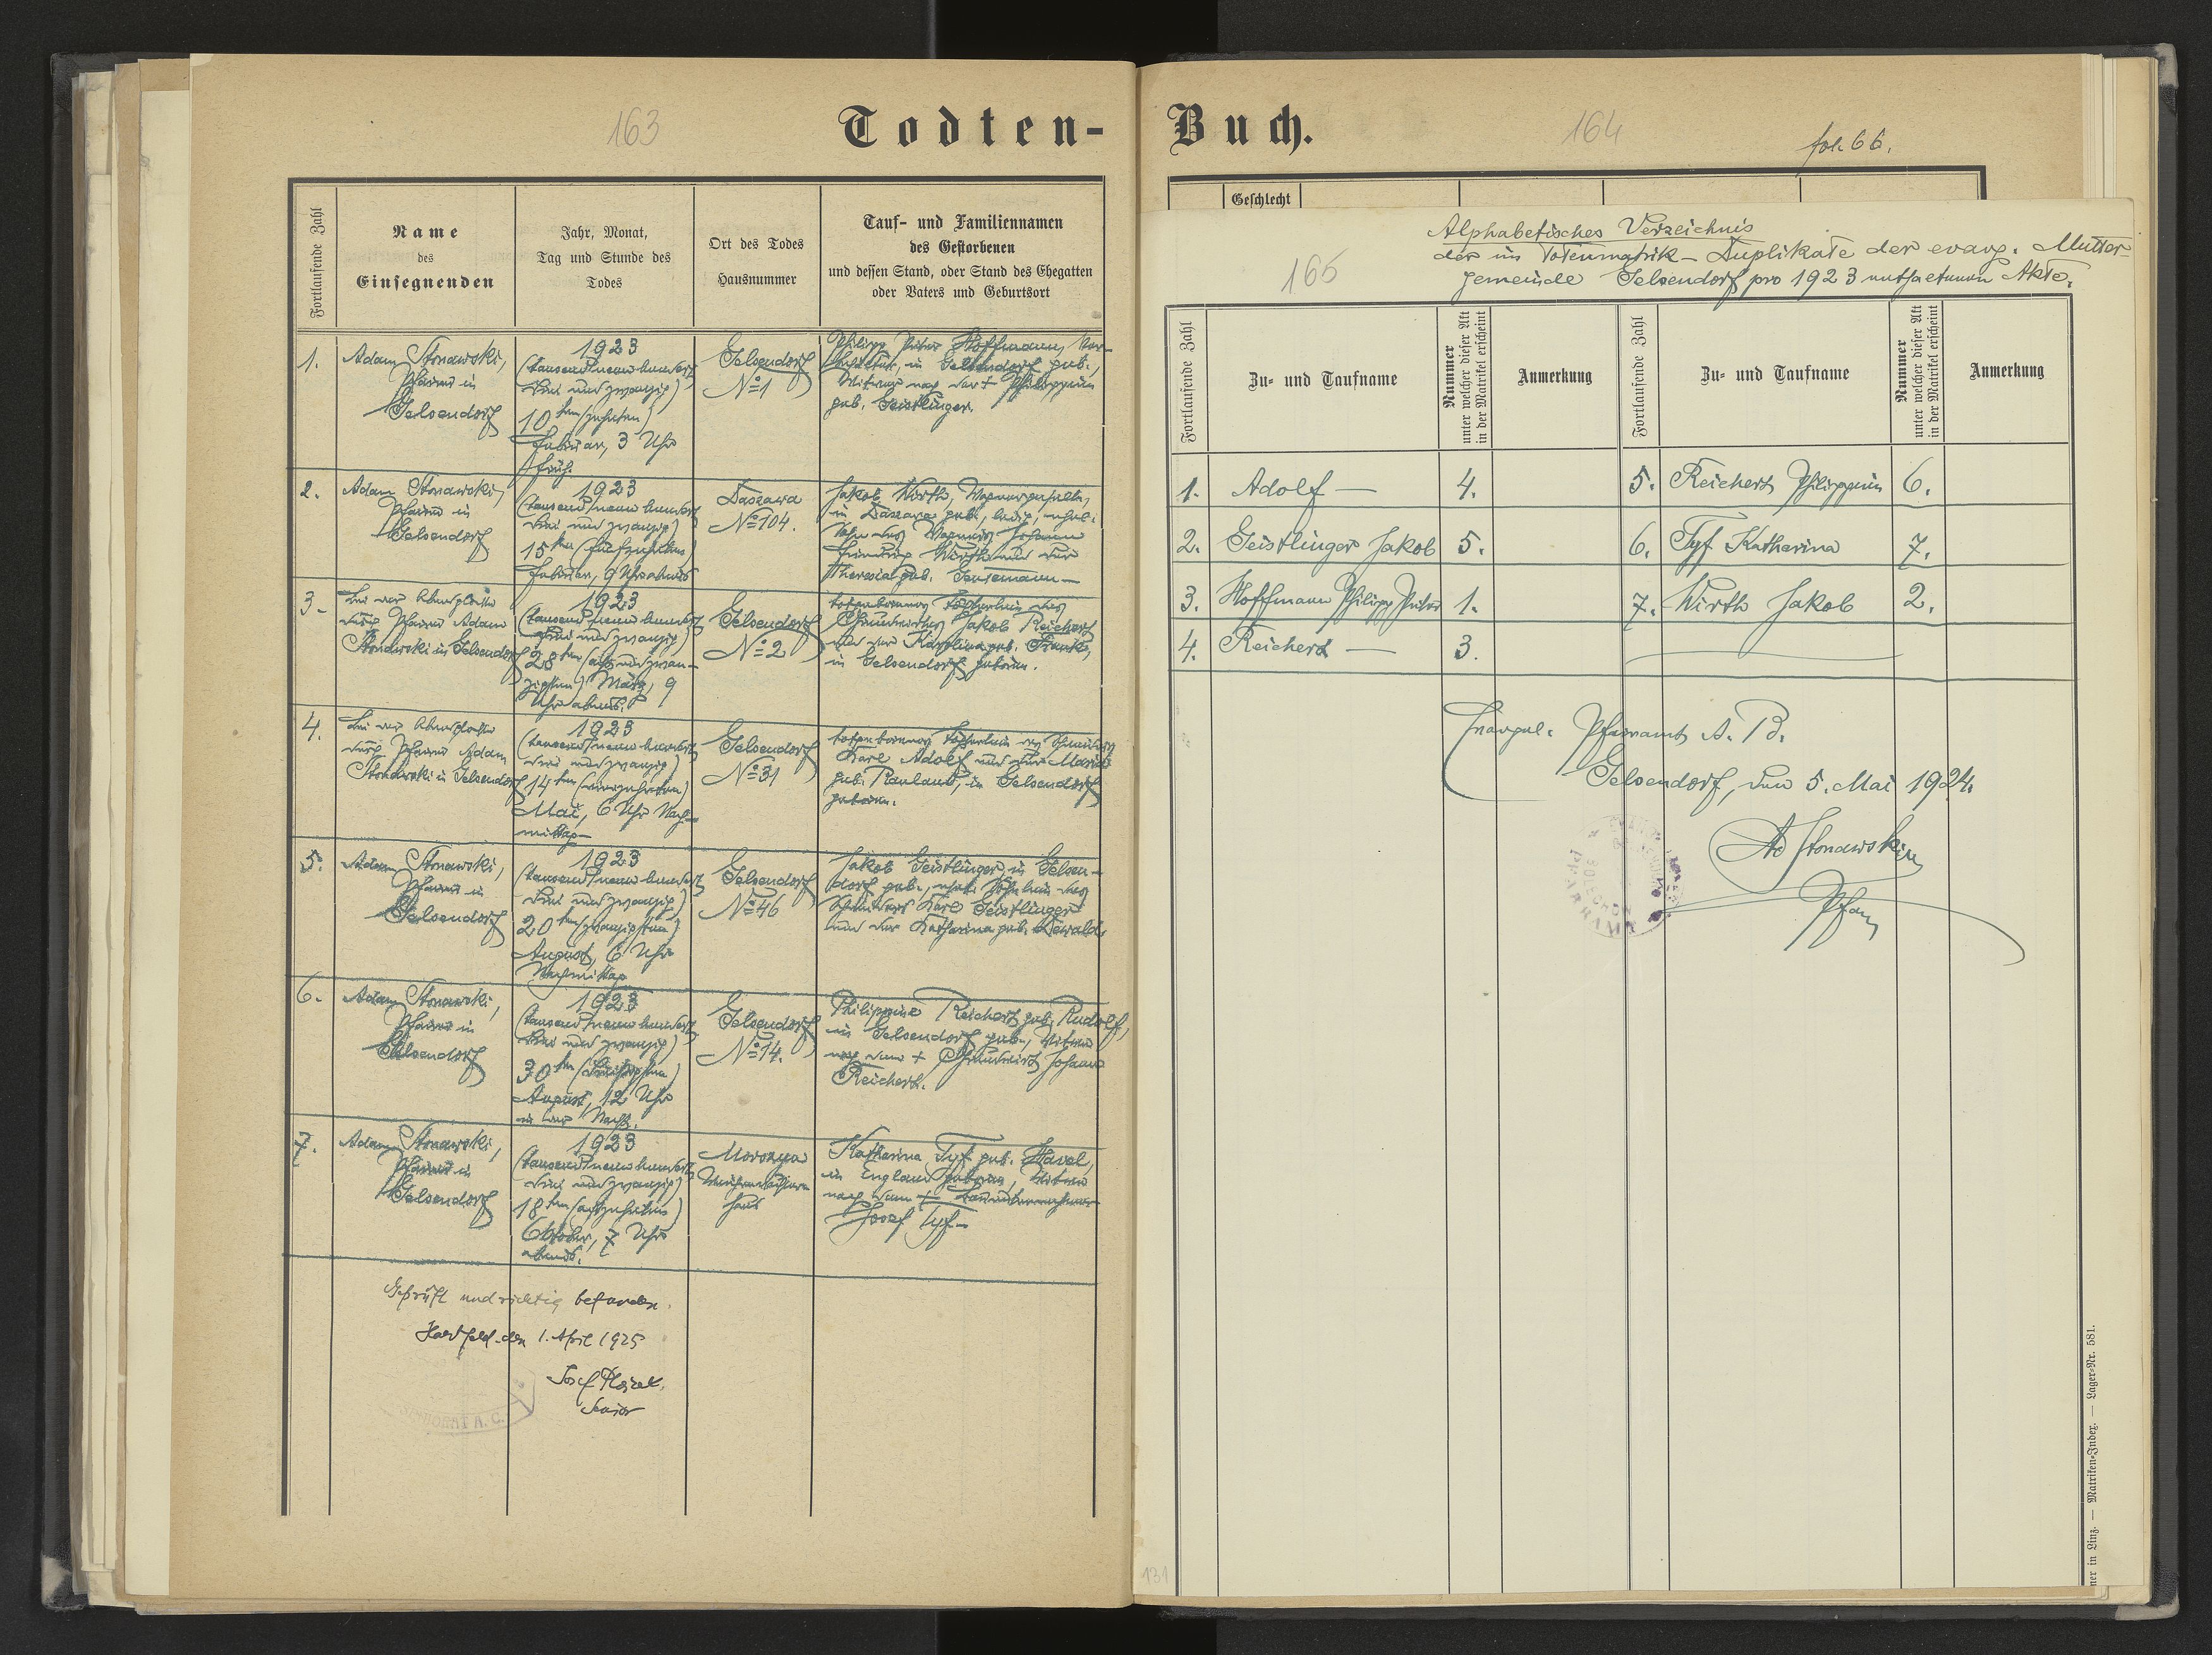 163
Todten-
Fortlaufende Zahl
Name
des
Einsegnenden
Jahr, Monat,
Tag und Stunde des
Todes
Ort des Todes
Hausnummer
Tauf- und Familiennamen
des Gestorbenen
und dessen Stand, oder Stand des Ehegatten
oder Vaters und Geburtsort
1.
Adam Stonawski,
Pfarrer in
Gelsendorf
1923
(tausend neunhundert
drei und zwanzig)
10ten (zehnten)
Februar, 3 Uhr
früh.
Gelsendorf
No 1
Philipp Peter Hoffmann,
in Gelsendorf geb.,
Witwer nach der + Philippine
geb. Geistlinger.
2.
Adam Stonawski,
Pfarrer in
Gelsendorf
1923
(tausend neunhundert
drei und zwanzig)
15ten (fünfzehnten)
Februar, 9 Uhr abends
Daszawa
No 104.
Jakob Wirth, Wagnergeselle,
in Daszawa geb., ledig, ehel.
Sohn des Wagners Johann
Heinrich Wirth und der
Theresia geb.
3.
durch Pfarrer Adam
Stonawski in Gelsendorf
1923
(tausend neunhundert
drei und zwanzig)
28ten (acht und zwan-
zigsten) März, 9
Uhr abends.
Gelsendorf
No 2
totgeborenes Töchterlein des
Grundwirtes Jakob Reichert
und der Karolina geb. Franke,
in Gelsendorf geboren.
4.
durch Pfarrer Adam
Stonawski in Gelsendorf
1923
(tausend neunhundert
drei und zwanzig)
14ten (vierzehnten)
Mai, 6 Uhr Nach-
mittag
Gelsendorf
No 31
totgeborenes Töchterlein des
Karl Adolf und der Maria
geb. in Gelsendorf
geboren.
5.
Adam Stonawski,
Pfarrer in
Gelsendorf
1923
(tausend neunhundert
drei und zwanzig)
20ten (zwanzigsten)
August, 6 Uhr
Nachmittag
Gelsendorf
No 46
Jakob Geistlinger, in Gelsen-
dorf geb., ehel. Söhnlein des
Karl Geistlinger
und der Katharina geb. Dewald.
6.
Adam Stonawski,
Pfarrer in
Gelsendorf
1923
(tausend neunhundert
drei und zwanzig)
30ten (dreißigsten)
August, 12 Uhr
in der Nacht.
Gelsendorf
No 14.
Philippine Reichert geb. Rudolf,
in Gelsendorf geb., Witwe
nach dem + Grundwirt Johann
Reichert.
7.
Adam Stonawski,
Pfarrer in
Gelsendorf
1923
(tausend neunhundert
drei und zwanzig)
18ten (achtzehnten)
Oktober, 7 Uhr
abends.
haus
Katharina Tyf geb. Havel,
in England geboren, Witwe
nach dem + Bauunternehmer
Josef Tyf
Geprüft und richtig befunden.
Hartfeld den 1. April 1925
Josef
Senior
SENIORAT A. C.
Buch.
164
fol. 66.
Geschlecht
165
Alphabetisches Verzeichnis
der im Totenmatrik-Duplikate der evang. Mutter-
gemeinde Gelsendorf pro 1923 enthaltenen Akte.
Fortlaufende Zahl
Zu- und Taufname
Nummer
unter welcher dieser Akt
in der Matrikel erscheint
Anmerkung
Fortlaufende Zahl
Zu- und Taufname
Nummer
unter welcher dieser Akt
in der Matrikel erscheint
Anmerkung
1. Adolf — 4.
5. Reichert Philippine 6.
2. Geistlinger Jakob 5.
6. Tyf Katharina 7.
3. Hoffmann Philipp Peter 1.
7. Wirth Jakob 2.
4. Reichert — 3.
Evangel. Pfarramt A. B.
Gelsendorf, den 5. Mai 1924.
Ad Stonawski
Pfarr
131
ner in Linz. — Matriken-Index. — Lager-Nr. 581.